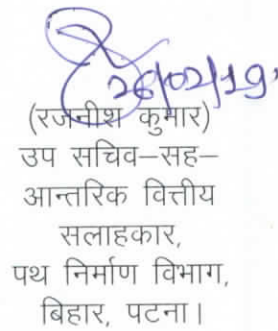 26/02/19.
(रजनीश कुमार)
उप सचिव–सह–
आन्तरिक वित्तीय
सलाहकार,
पथ निर्माण विभाग,
बिहार, पटना।